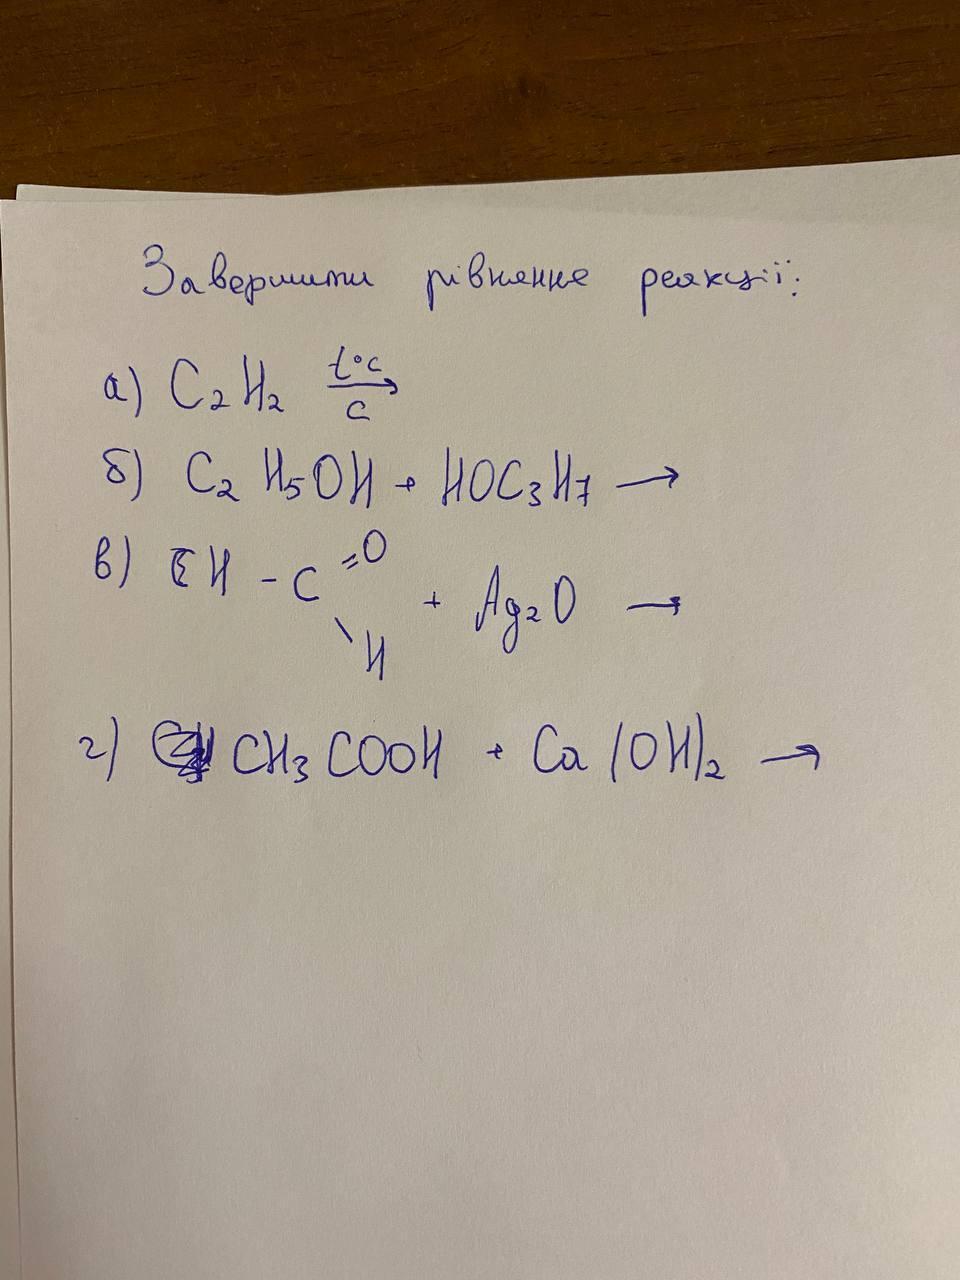 Завершити рівняння реакції:
а) C₂H₂ t°c→ c
б) C₂H₅OH + HOC₃H₇ →
в) H - C =O \H + Ag₂O →
г) CH₃COOH + Ca(OH)₂ →